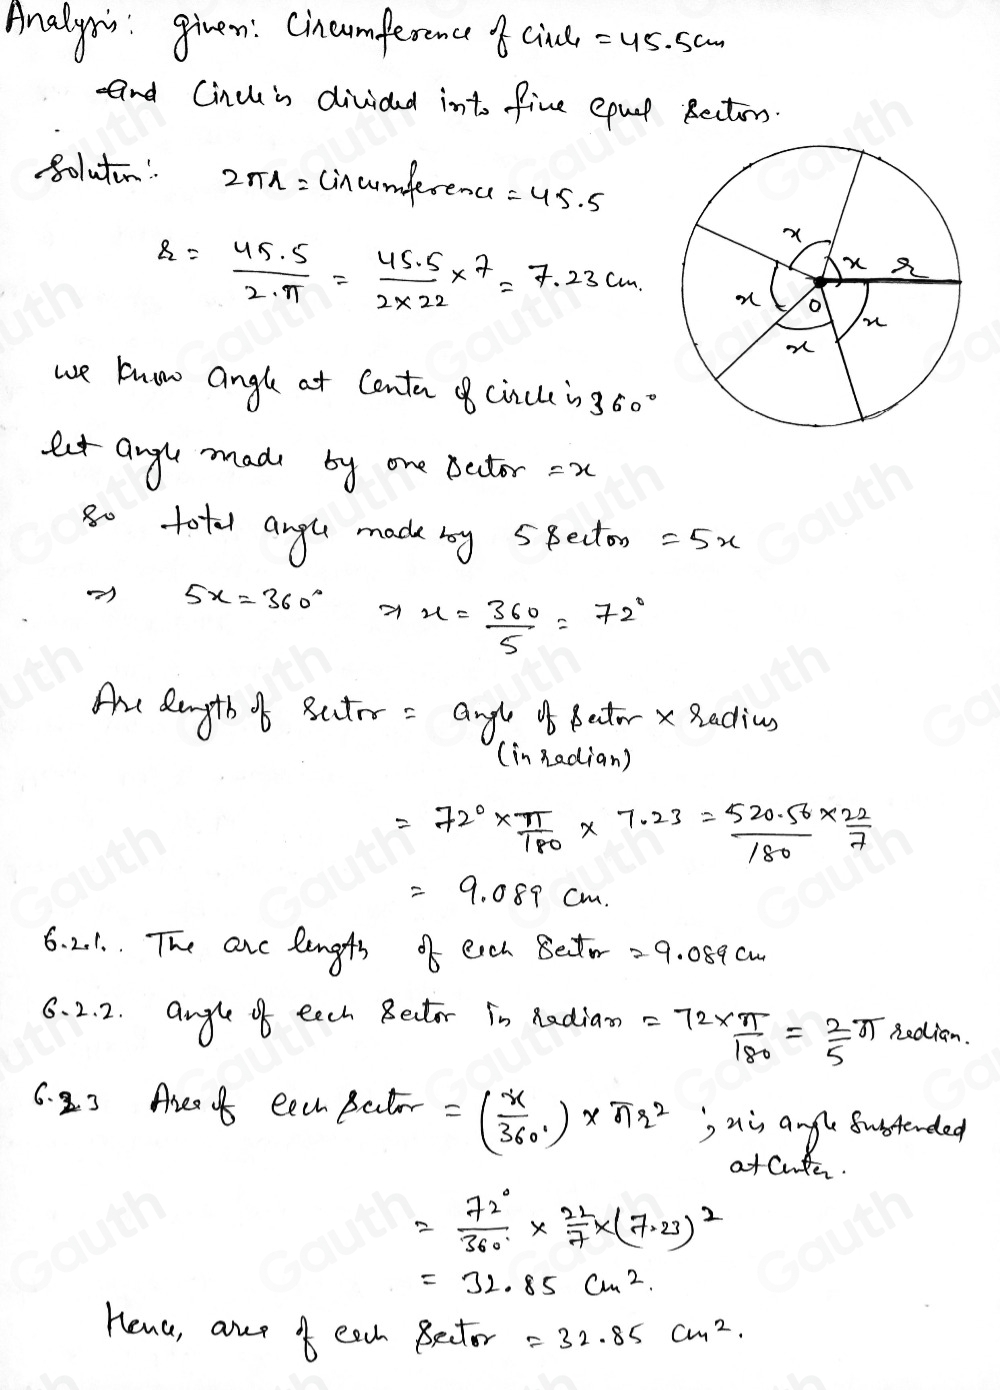 Analysis: given: Circumference of circle = 45.5cm
and Circle is divided into five equal sectors.
Solution: 2πr = Circumference = 45.5
r = 45.5/2.π = 45.5/2×22 × 7 = 7.23 cm.
x x r x 0 x x
we know angle at Center of circle is 360°
let angle made by one sector = x
So total angle made by 5 sectors = 5x
⇒ 5x = 360° ⇒ x = 360/5 = 72°
Arc length of sector = angle of sector × radius
(in radian)
= 72° × π/180 × 7.23 = 520.56/180 × 22/7
= 9.089 cm.
6.2.1. The arc length of each sector = 9.089 cm
6.2.2. angle of each sector in radian = 72 × π/180 = 2/5 π radian.
6.2.3 Area of each sector = (x/360°) × πr² ; x is angle subtended
at center.
= 72°/360° × 22/7 × (7.23)²
= 32.85 cm².
Hence, area of each sector = 32.85 cm².